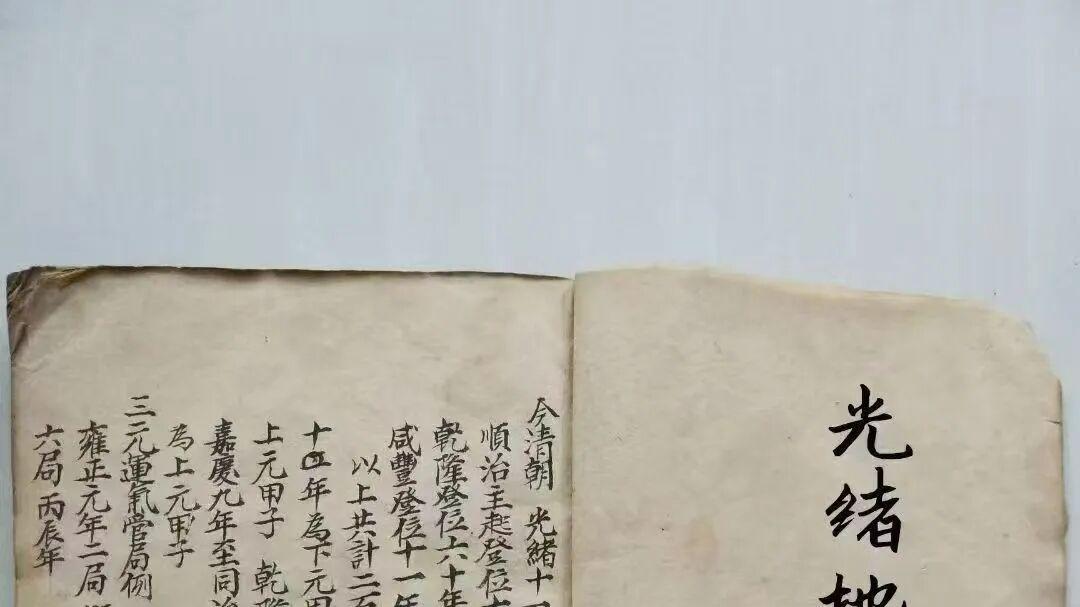 光緒地
今清朝 光緒十一
順治主起登位十
乾隆登位六十年
咸豐登位十一年
以上共計二百
十四年為下元甲
上元甲子 乾隆
嘉慶九年至同治
為上元甲子
三元運氣管局例
雍正元年二局
六局 丙辰年